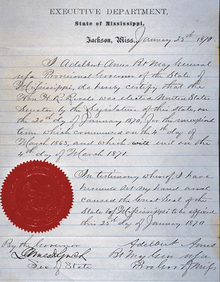 EXECUTIVE DEPARTMENT,
State of Mississippi,
Jackson, Miss. January 25th 1870
I Adelbert Ames Bt May General
U.S.A. Provisional Governor of the State of
Mississippi, do hereby certify that the
Hon H. R. Revels was elected United States
Senator by the Legislature of this State, on
the 20th day of January 1870, for the unexpired
term which commenced on the 4th day of
March 1865, and which will end on the
4th day of March 1871.
In testimony whereof I have
hereunto set my hand and
caused the Great Seal of the
State of Mississippi to be affixed
this 25th day of January 1870
Adelbert Ames
By the Governor
Bt Maj Gen U.S.A
James Lynch
Sec. of State
Prov Gov of Miss.